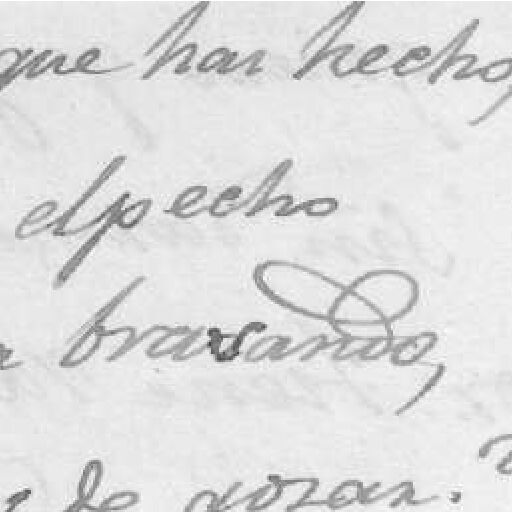 que has hecho,
el pecho
brasando,
de gozar.